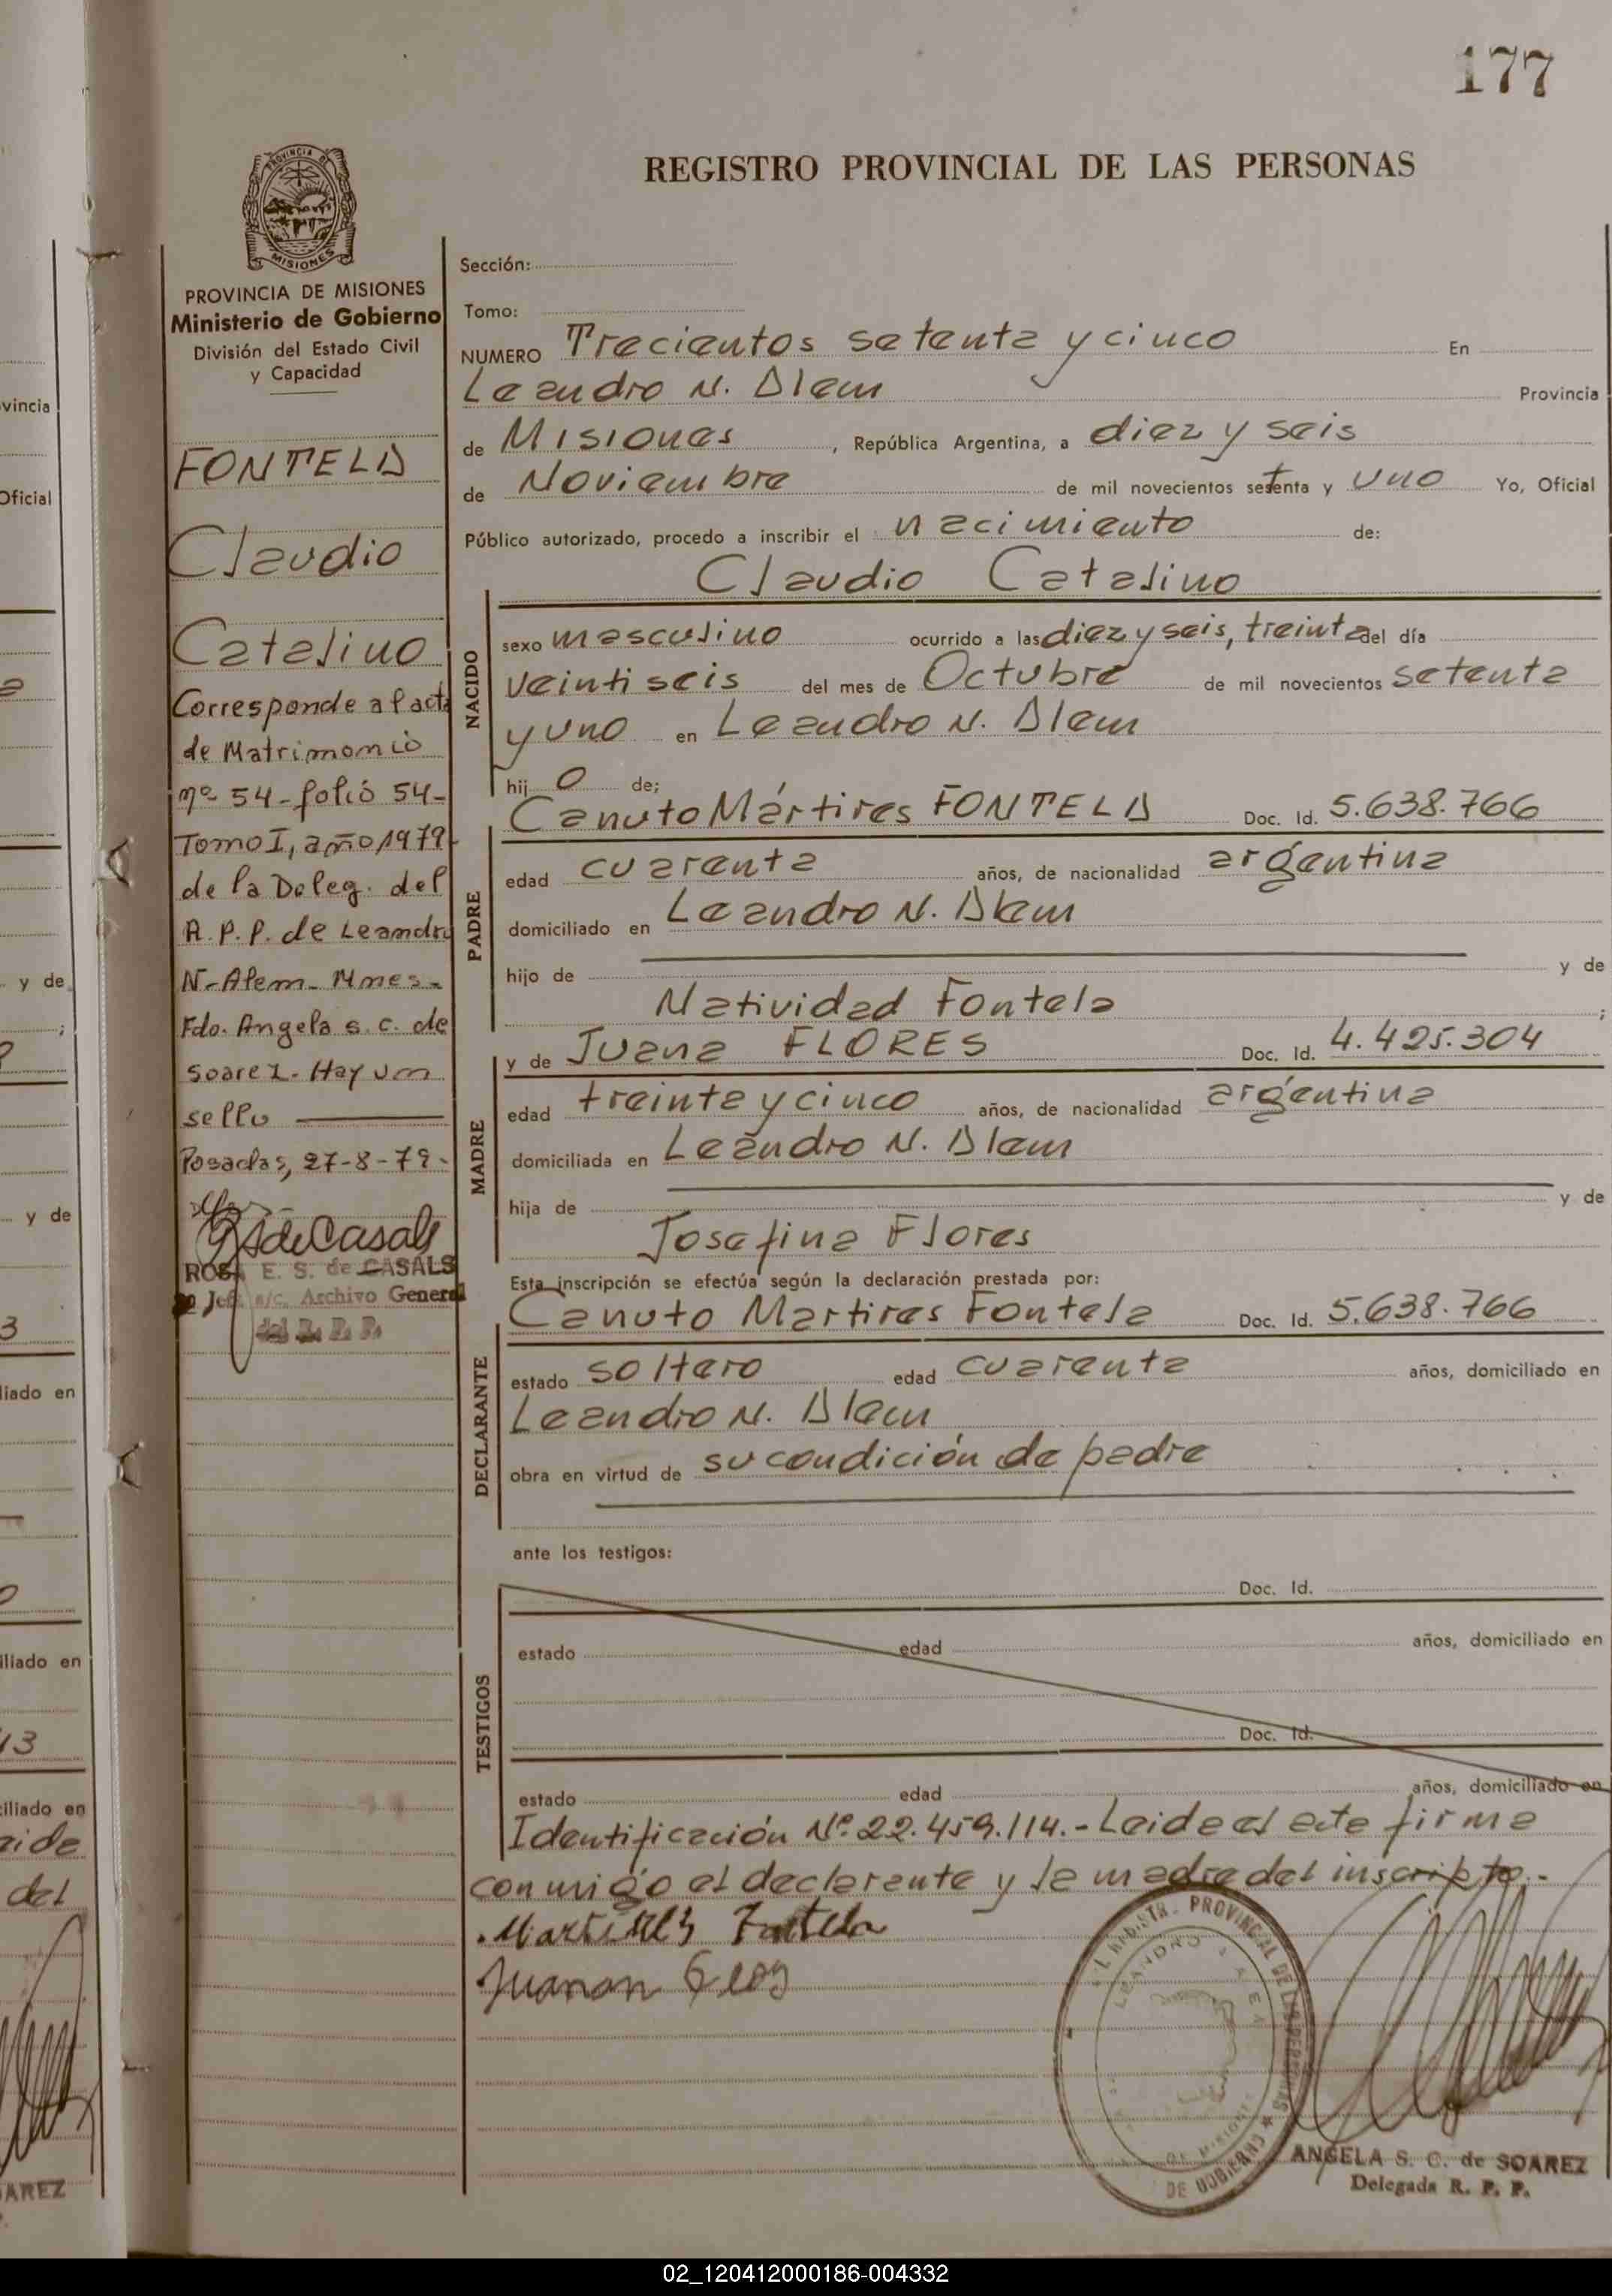 177
REGISTRO PROVINCIAL DE LAS PERSONAS
PROVINCIA DE
MISIONES
PROVINCIA DE MISIONES
Ministerio de Gobierno
División del Estado Civil
y Capacidad
FONTELA
Claudio
Catalino
Corresponde al acta
de Matrimonio
nº 54 - folio 54 -
Tomo I, año 1979
de la Deleg. del
R. P. P. de Leandro
N- Alem - Mnes -
Fdo. Angela s. c. de
soarez - Hay un
sello
Posadas, 27-8-79 -
ROSA E. S. de CASALS
Jef. a/c. Archivo General
del R. P. P.
Sección:
Tomo:
NUMERO Trecientos setenta y cinco En
Leandro N. Alem Provincia
de Misiones, República Argentina, a diez y seis
de Noviembre de mil novecientos setenta y uno Yo, Oficial
Público autorizado, procedo a inscribir el nacimiento de:
Claudio Catalino
NACIDO
sexo masculino ocurrido a las diez y seis, treinta del día
veintiseis del mes de Octubre de mil novecientos setenta
y uno en Leandro N. Alem
hij o de;
Canuto Mártires FONTELA Doc. Id. 5.638.766
PADRE
edad cuarenta años, de nacionalidad argentina
domiciliado en Leandro N. Alem
hijo de y de
Natividad Fontela ;
y de Juana FLORES Doc. Id. 4.425.304
MADRE
edad treinta y cinco años, de nacionalidad argentina
domiciliada en Leandro N. Alem
hija de y de
Josefina Flores
Esta inscripción se efectúa según la declaración prestada por:
Canuto Martires Fontela Doc. Id. 5.638.766
DECLARANTE
estado soltero edad cuarenta años, domiciliado en
Leandro N. Alem
obra en virtud de su condición de padre
ante los testigos:
Doc. Id.
TESTIGOS
estado edad años, domiciliado en
Doc. Id.
estado edad años, domiciliado en
Identificación Nº 22.459.114.- Leida el acta firma
conmigo el declarante y la madre del inscripto.-
Fontela
ANGELA S. C. de SOAREZ
Delegada R. P. P.
vincia
Oficial
y de
;
y de
3
liado en
iliado en
13
ciliado en
aida
del
AREZ
02_120412000186-004332